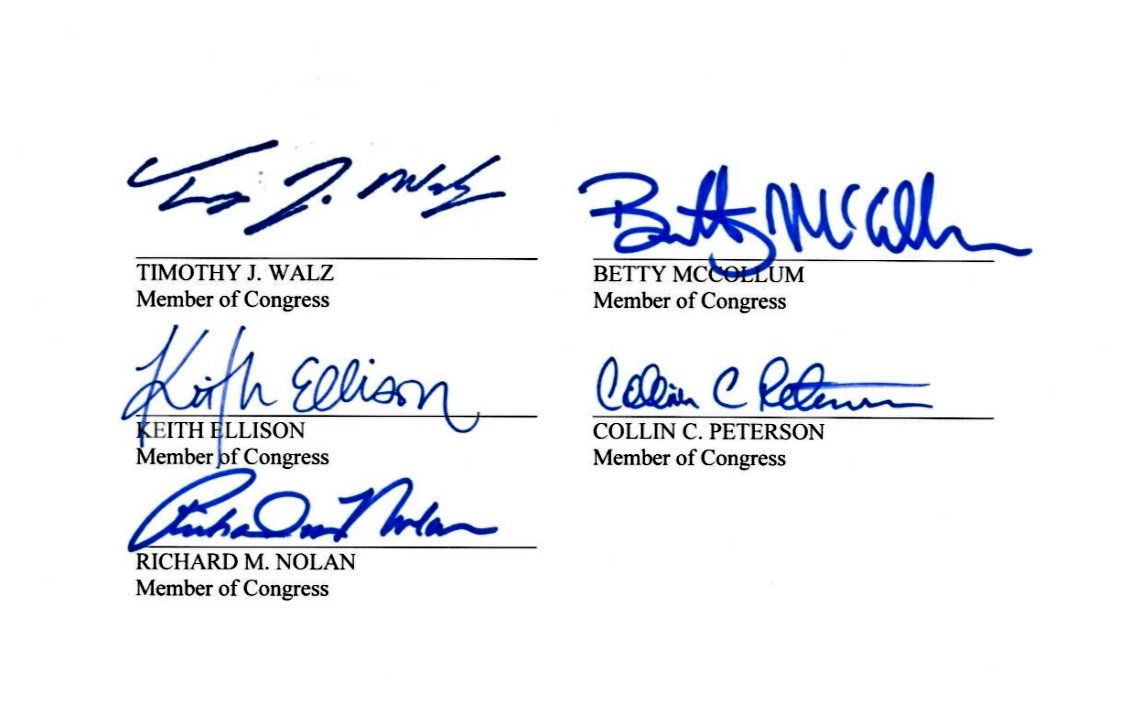 Tim J. Walz
Betty McCollum
TIMOTHY J. WALZ
BETTY MCCOLLUM
Member of Congress
Member of Congress
Keith Ellison
Collin C Peterson
KEITH ELLISON
COLLIN C. PETERSON
Member of Congress
Member of Congress
Richard M Nolan
RICHARD M. NOLAN
Member of Congress